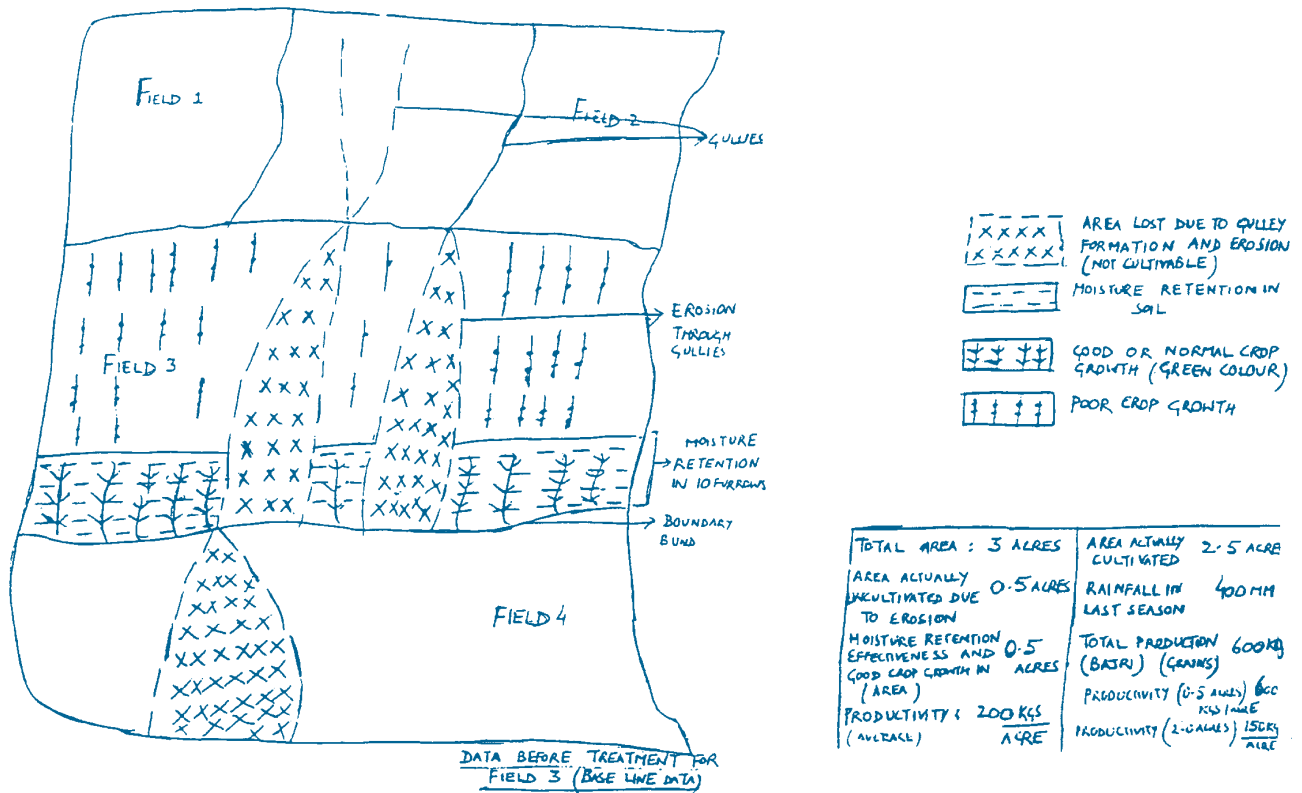 FIELD 1
FIELD 2
GULLIES
FIELD 3
EROSION
THROUGH
GULLIES
MOISTURE
RETENTION
IN 10 FURROWS
BOUNDARY
BUND
FIELD 4
DATA BEFORE TREATMENT FOR
FIELD 3 (BASE LINE DATA)
AREA LOST DUE TO GULLEY
FORMATION AND EROSION
(NOT CULTIVABLE)
MOISTURE RETENTION IN
SOIL
GOOD OR NORMAL CROP
GROWTH (GREEN COLOUR)
POOR CROP GROWTH
TOTAL AREA : 3 ACRES
AREA ACTUALLY
UNCULTIVATED DUE 0.5 ACRES
TO EROSION
MOISTURE RETENTION
EFFECTIVENESS AND 0.5
GOOD CROP GROWTH IN ACRES
(AREA)
PRODUCTIVITY : 200 KGS
(AVERAGE) ACRE
AREA ACTUALLY 2.5 ACRE
CULTIVATED
RAINFALL IN 400 MM
LAST SEASON
TOTAL PRODUCTION 600 KG
(BAJRI) (GRAINS)
PRODUCTIVITY (0.5 ACRES) 600
KGS/ACRE
PRODUCTIVITY (2.0 ACRES) 150 KG
ACRE